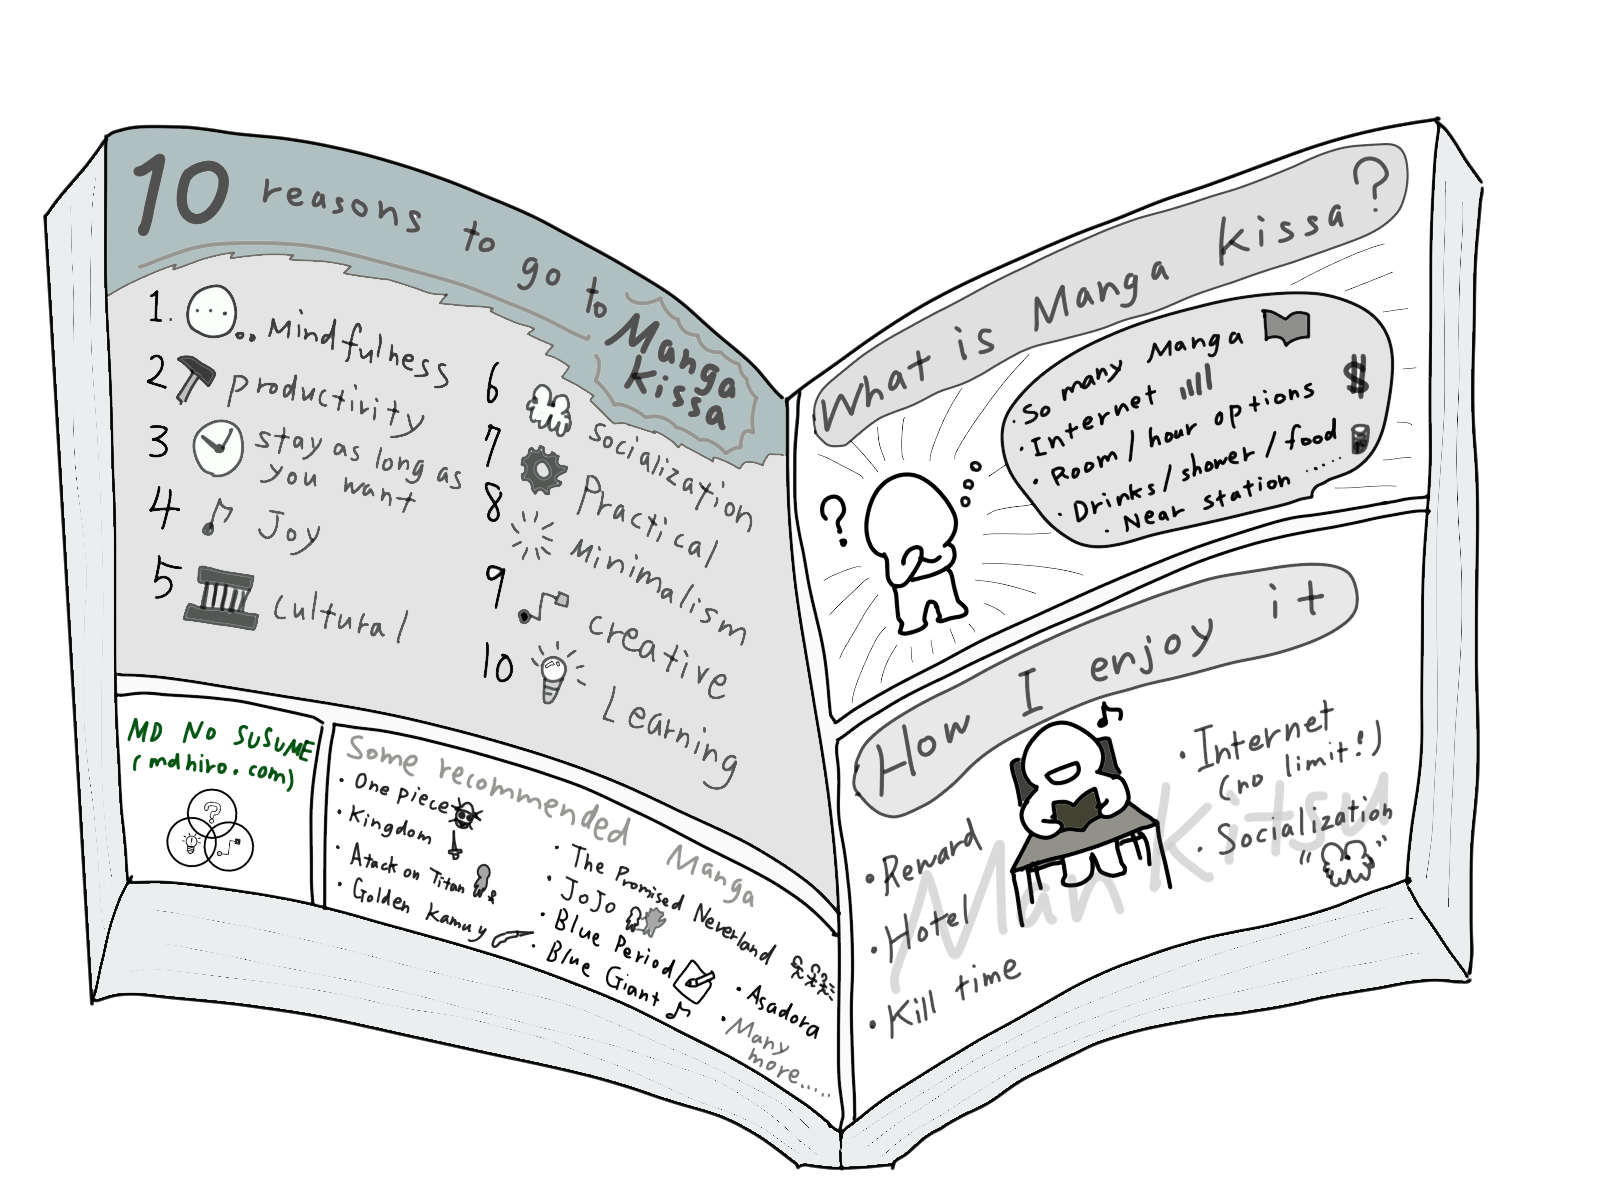 10 reasons to go to Manga Kissa
1. Mindfulness
2 productivity
3 stay as long as
you want
4 Joy
5 cultural
6 Socialization
7 Practical
8 Minimalism
9 creative
10 Learning
MD NO SUSUME
(mdhiro.com)
?
Some recommended Manga
· One piece
· Kingdom
· Atack on Titan
· Golden Kamuy
· The Promised Neverland
· JoJo
· Blue Period
· Blue Giant
· Asadora
· Many
more.....
What is Manga Kissa?
· So many Manga
· Internet
· Room / hour options $
· Drinks / shower / food
· Near station ......
?
How I enjoy it
· Reward
· Hotel
· Kill time
· Internet
(no limit!)
· Socialization
Mankitsu